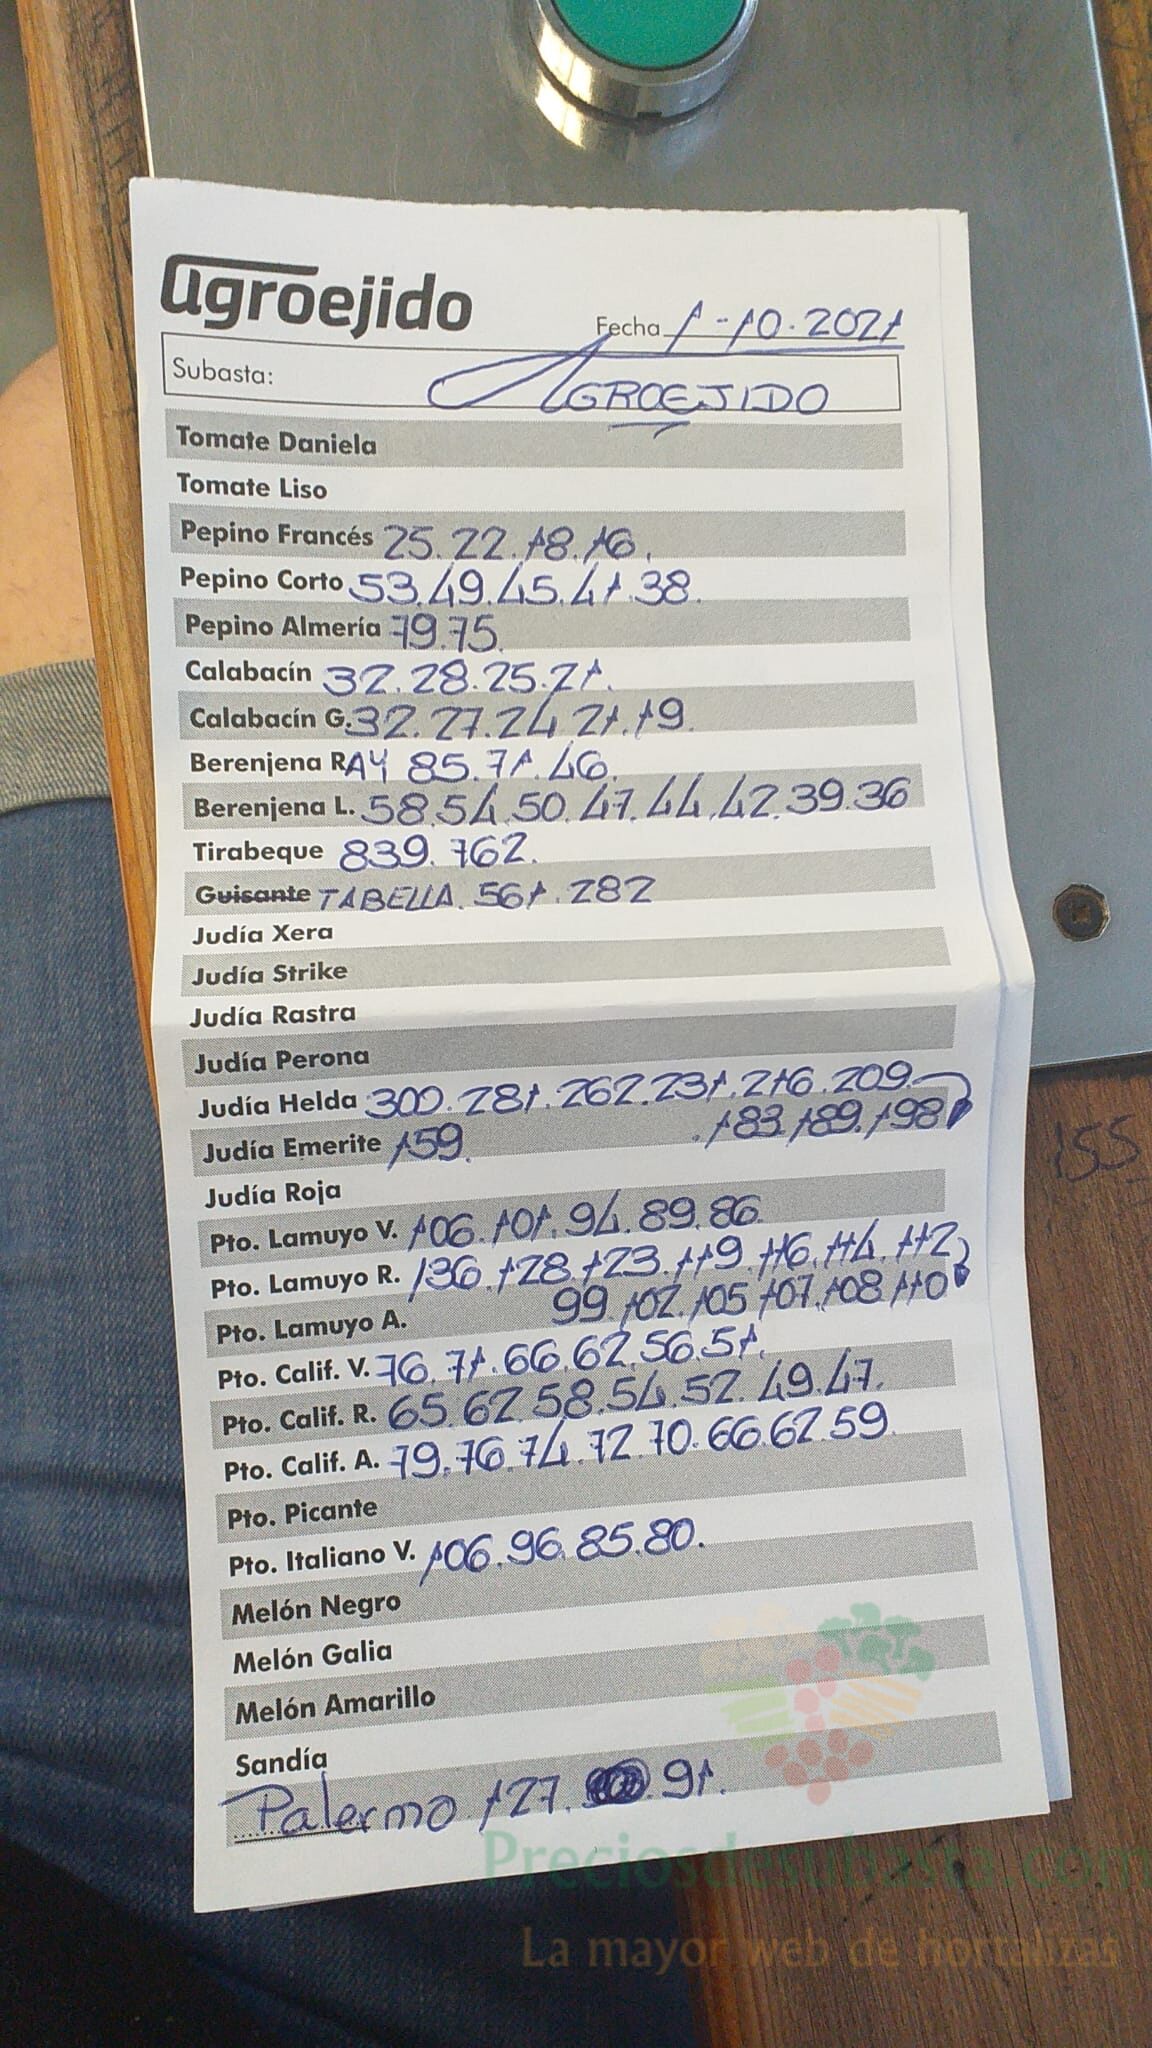 agroejido
Fecha 1-10.2021
Subasta: AGROEJIDO
Tomate Daniela
Tomate Liso
Pepino Francés 25.22.18.16.
Pepino Corto 53.49.45.41.38.
Pepino Almería 79.75.
Calabacín 32.28.25.21.
Calabacín G. 32.27.24.21.19.
Berenjena RAY 85.71.46.
Berenjena L. 58.54.50.47.44.42.39.36
Tirabeque 839.762.
Guisante TABELLA. 561.282
Judía Xera
Judía Strike
Judía Rastra
Judía Perona
Judía Helda 300.281.262.231.216.209
.183.189.198
Judía Emerite 159.
155
Judía Roja
Pto. Lamuyo V. 106.101.94.89.86.
Pto. Lamuyo R. 136.128.123.119.116.114.112
99.102.105.107.108.110
Pto. Lamuyo A.
Pto. Calif. V. 76.71.66.62.56.51.
Pto. Calif. R. 65.62.58.54.52.49.47.
Pto. Calif. A. 79.76.74.72.70.66.62.59.
Pto. Picante
Pto. Italiano V. 106.96.85.80.
Melón Negro
Melón Galia
Melón Amarillo
Sandía
Palermo 127. .91.
Preciosdesubasta.com
La mayor web de hortalizas